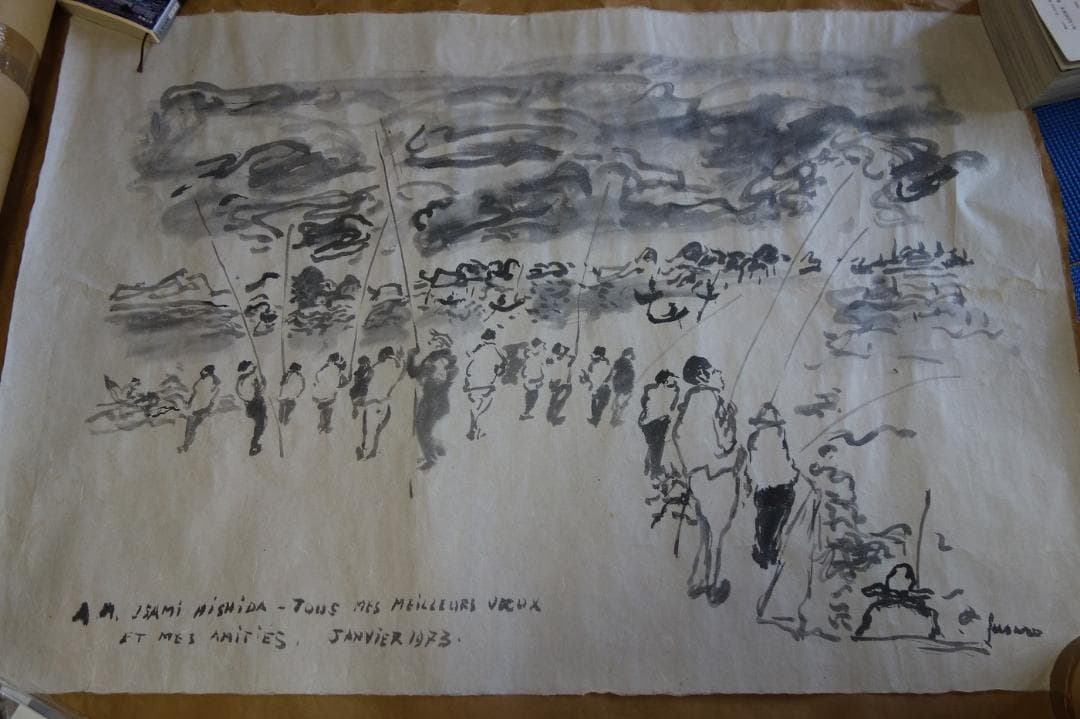 A M. ISAMI NISHIDA - TOUS MES MEILLEURS VŒUX
ET MES AMITIÉS. JANVIER 1973.